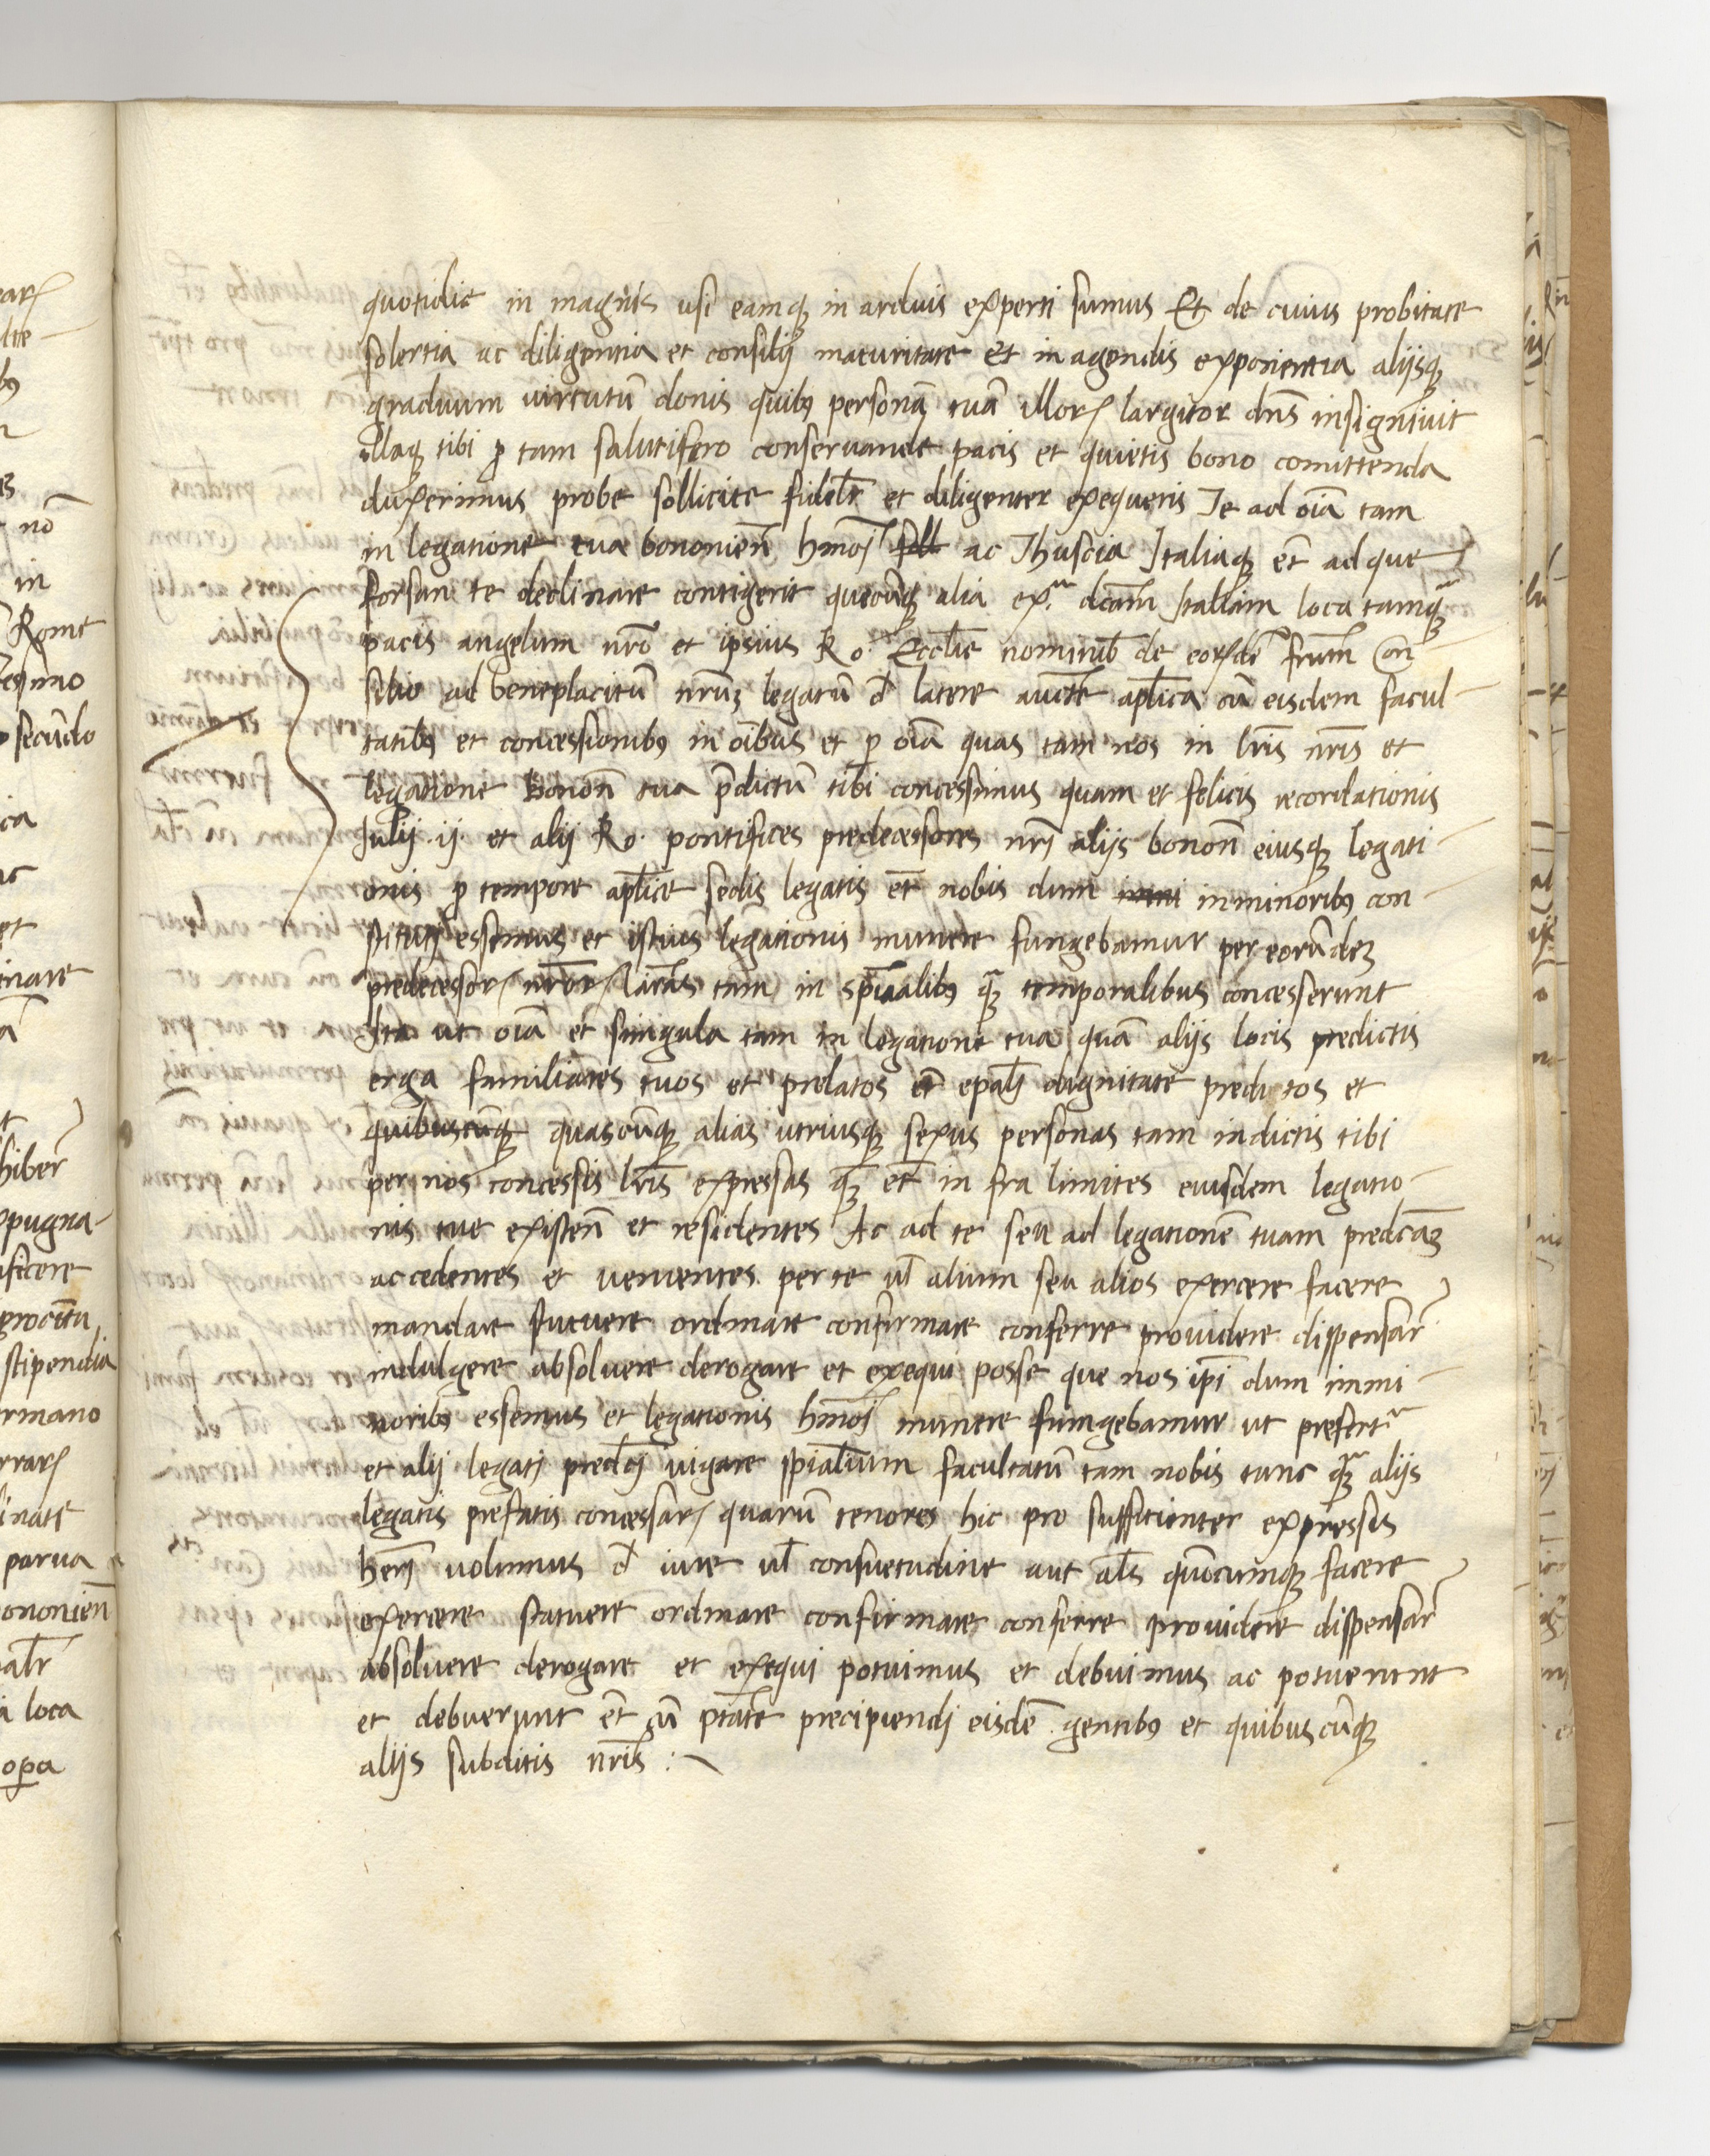 quotidie in magnis usi eamq̃ in arduis experti sumus Et de cuius probitate
solertia ac diligentia et consilij maturitate et in agendis experientia alijsq̃
graduum virtutũ donis quibꝰ personã tuã illorꝝ largitor dñs insignivit
illaq̃ tibi ꝓ tam salutifero conservande pacis et quietis bono comittenda
duxerimus probe sollicite fidelr̃ et diligenter exequeris Te ad oĩa tam
in legatione tua bononieñ hmõj ac Thuscia Italiaq̃ et̃ ad que
forsan te declinare contigerit quecũq̃ alia ex.ª dcãm Italiam loca tamq̃
pacis angelum nr̃o et ipsius Ro. Eccl̃ie nominib̃ de eorꝝdẽ fr̃um Con-
silio ad beneplacitũ nr̃um legatũ d̃ latere auct̃e apl̃ica cũ eisdem facul-
tatibꝰ et concessionibꝰ in oĩbus et ꝑ oĩa quas tam nos in lr̃is nr̃is et
legatione bonoñ tua p̃dictũ tibi concessimus quam et felicis recordationis
Julij .ij. et alij Ro. pontifices predecessores nr̃i alijs bonoñ eiusq̃ legati-
onis ꝓ tempore apl̃ice sedis legatis et̃ nobis dum in minoribꝰ con-
stitutj essemus et istius legationis munere fungebamur per eorũdeꝫ
predecessorꝝ nr̃orꝝ lr̃as tam in spir̃alibꝰ q̃ temporalibus concesserunt
Ita ut oĩa et singula tam in legatione tua quã alijs locis predictis
erga familiares tuos et prelatos et̃ epalj dignitate preditos et
quibuscũq̃ quascũq̃ alias utriusq̃ sexus personas tam in dictis tibi
per nos concessis lr̃is expressas q̃ et̃ in fra limites eiusdem legatio-
nis tue existeñ et residentes Ac ad te seu ad legationẽ tuam predcãꝫ
accedentes et venientes per te ul̃ alium seu alios exercere facere
mandare statuere ordinare confirmare conferre providere dispensar̃
indulgere absolvere derogare et exequi posse que nos ip̃i dum in mi-
noribꝰ essemus et legationis hmõj munere fungebamur ut prefert.r
et alij legatj predc̃j vigore sp̃ialium facultatũ tam nobis tunc q̃ alijs
legatis prefatis concessarꝝ quarũ tenores hic pro sufficienter expressis
her̃j volumus d̃ iure ul̃ consuetudine aut al̃s qũocumq̃ facere
exercere statuere ordinare confirmare conferre providere dispensar̃
absolvere derogare et exequi potuimus et debuimus ac potuerunt
et debuerunt et̃ cũ ptãte precipiendj eisdẽ gentibꝰ et quibuscũq̃
alijs subditis nr̃is :~